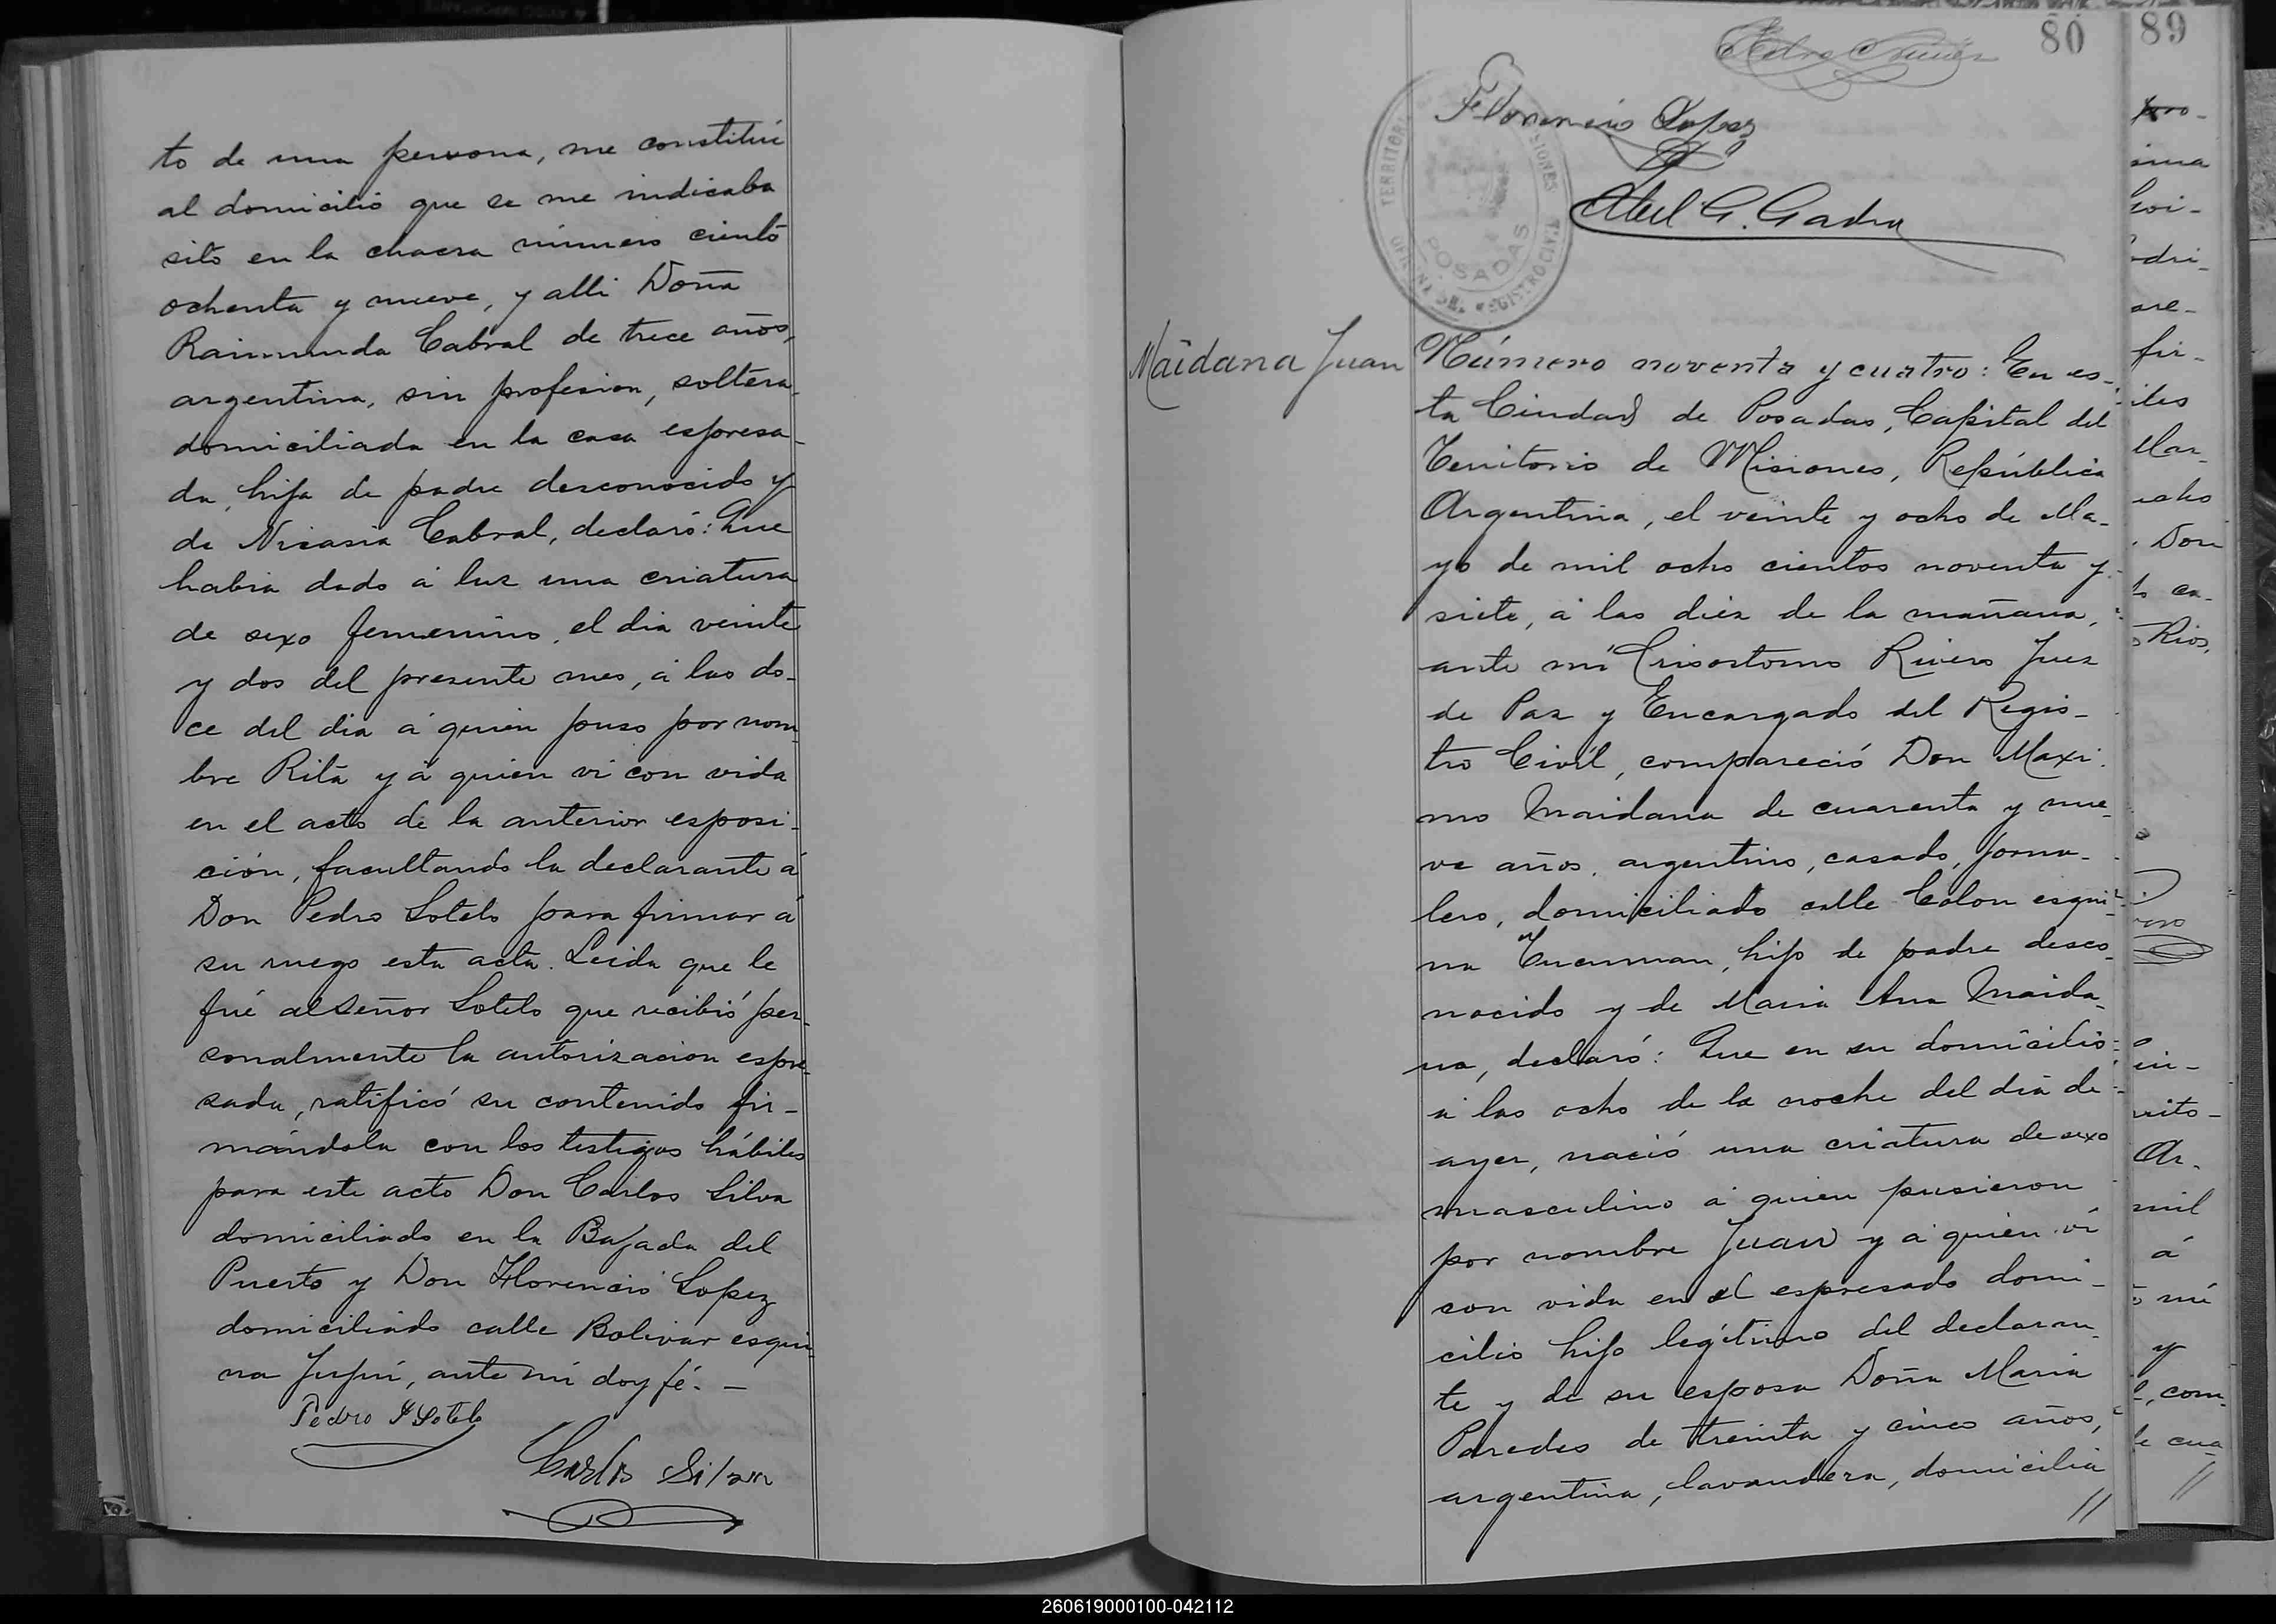 to de una persona, me constituí
al domicilio que se me indicaba
sito en la chacra número ciento
ochenta y nueve, y alli Doña
Raimunda Cabral de trece años,
argentina, sin profesion, soltera,
domiciliada en la casa espresa-
da, hija de padre desconocido y
de Nicasia Cabral, declaró: Que
habia dado á luz una criatura
de sexo femenino, el dia veinte
y dos del presente mes, á las do-
ce del dia á quien puso por nom-
bre Rita y á quien vi con vida
en el acto de la anterior esposi-
ción, facultando la declarante á
Don Pedro Sotelo para firmar á
su ruego esta acta. Leida que le
fué al Señor Sotelo que recibió per-
sonalmente la autorizacion espre-
sada, ratificó su contenido fir-
mándola con los testigos hábiles
para este acto Don Carlos Silva
domiciliado en la Bajada del
Puerto y Don Florencio Lopez
domiciliado calle Bolivar esqui-
na Jujuí, ante mí doy fé. -
Pedro Sotelo
Carlos Silva
80
Florencio Lopez
Abel G.
TERRITORIO MISIONES
POSADAS
OFICINA DEL REGISTRO CIVIL
Maidana Juan
Número noventa y cuatro: En es-
ta Ciudad de Posadas, Capital del
Territorio de Misiones, República
Argentina, el veinte y ocho de Ma-
yo de mil ocho cientos noventa y
siete, á las diez de la mañana,
ante mí Crisostomo Rivero Juez
de Paz y Encargado del Regis-
tro Civil, compareció Don Maxi-
mo Maidana de cuarenta y nue-
ve años, argentino, casado, jorna-
lero, domiciliado calle Colon esqui-
na Tucuman, hijo de padre desco-
nocido y de Maria Ana Maida-
na, declaró: Que en su domicilio
á las ocho de la noche del dia de
ayer, nació una criatura de sexo
masculino á quien pusieron
por nombre Juan y á quien ví
con vida en el espresado domi-
cilio hijo legítimo del declaran-
te y de su esposa Doña Maria
Paredes de treinta y cinco años,
argentina, lavandera, domicilia
//
89
Don
Rios,
Ar-
mil
á
mí
y
com-
//
260619000100-042112